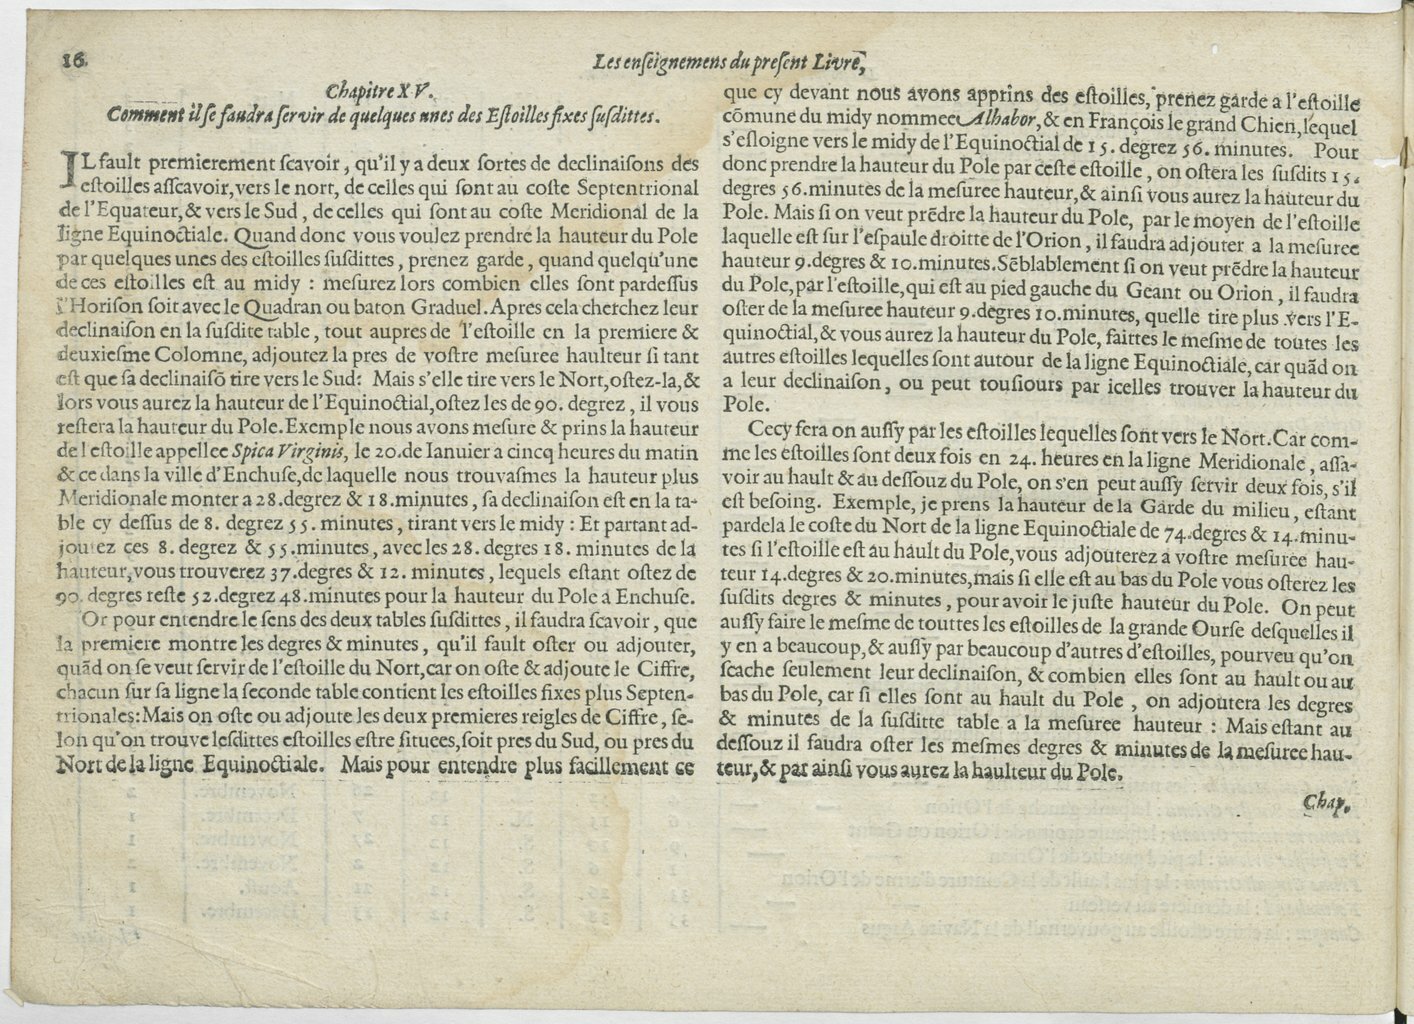 16.
Les enſeignemens du preſent Livre,
Chapitre XV.
Comment il ſe faudra ſervir de quelques unes des Eſtoilles fixes ſuſdittes.
IL fault premierement ſcavoir, qu'il y a deux ſortes de declinaiſons des
eſtoilles aſſcavoir, vers le nort, de celles qui ſont au coſte Septentrional
de l'Equateur, & vers le Sud, de celles qui ſont au coſte Meridional de la
ligne Equinoctiale. Quand donc vous voulez prendre la hauteur du Pole
par quelques unes des eſtoilles ſuſdittes, prenez garde, quand quelqu'une
de ces eſtoilles eſt au midy : meſurez lors combien elles ſont pardeſſus
l'Horiſon ſoit avec le Quadran ou baton Graduel. Apres cela cherchez leur
declinaiſon en la ſuſdite table, tout aupres de l'eſtoille en la premiere &
deuxieſme Colomne, adjoutez la pres de voſtre meſuree haulteur ſi tant
eſt que ſa declinaiſõ tire vers le Sud: Mais s'elle tire vers le Nort, oſtez-la, &
lors vous aurez la hauteur de l'Equinoctial, oſtez les de 90. degrez, il vous
reſtera la hauteur du Pole. Exemple nous avons meſure & prins la hauteur
de l'eſtoille appellee Spica Virginis, le 20. de Ianuier a cinq heures du matin
& ce dans la ville d'Enchuſe, de laquelle nous trouvaſmes la hauteur plus
Meridionale monter a 28. degrez & 18. minutes, ſa declinaiſon eſt en la ta-
ble cy deſſus de 8. degrez 55. minutes, tirant vers le midy : Et partant ad-
joutez ces 8. degrez & 55. minutes, avec les 28. degres 18. minutes de la
hauteur, vous trouverez 37. degres & 12. minutes, lequels eſtant oſtez de
90. degres reſte 52. degrez 48. minutes pour la hauteur du Pole a Enchuſe.
Or pour entendre le ſens des deux tables ſuſdittes, il faudra ſcavoir, que
la premiere montre les degres & minutes, qu'il fault oſter ou adjouter,
quãd on ſe veut ſervir de l'eſtoille du Nort, car on oſte & adjoute le Ciffre,
chacun ſur ſa ligne la ſeconde table contient les eſtoilles fixes plus Septen-
trionales: Mais on oſte ou adjoute les deux premieres reigles de Ciffre, ſe-
lon qu'on trouve leſdittes eſtoilles eſtre ſituees, ſoit pres du Sud, ou pres du
Nort de la ligne Equinoctiale. Mais pour entendre plus facillement ce
que cy devant nous avons apprins des eſtoilles, prenez garde a l'eſtoille
cõmune du midy nommee Alhabor, & en François le grand Chien, lequel
s'eſloigne vers le midy de l'Equinoctial de 15. degrez 56. minutes. Pour
donc prendre la hauteur du Pole par ceſte eſtoille, on oſtera les ſuſdits 15.
degres 56. minutes de la meſuree hauteur, & ainſi vous aurez la hauteur du
Pole. Mais ſi on veut prẽdre la hauteur du Pole, par le moyen de l'eſtoille
laquelle eſt ſur l'eſpaule droitte de l'Orion, il faudra adjouter a la meſuree
hauteur 9. degres & 10. minutes. Sẽblablement ſi on veut prẽdre la hauteur
du Pole, par l'eſtoille, qui eſt au pied gauche du Geant ou Orion, il faudra
oſter de la meſuree hauteur 9. degres 10. minutes, quelle tire plus vers l'E-
quinoctial, & vous aurez la hauteur du Pole, faittes le meſme de toutes les
autres eſtoilles lequelles ſont autour de la ligne Equinoctiale, car quãd on
a leur declinaiſon, ou peut touſiours par icelles trouver la hauteur du
Pole.
Cecy fera on auſſy par les eſtoilles lequelles ſont vers le Nort. Car com-
me les eſtoilles ſont deux fois en 24. heures en la ligne Meridionale, aſſa-
voir au hault & au deſſouz du Pole, on s'en peut auſſy ſervir deux fois, s'il
eſt beſoing. Exemple, je prens la hauteur de la Garde du milieu, eſtant
pardela le coſte du Nort de la ligne Equinoctiale de 74. degres & 14. minu-
tes ſi l'eſtoille eſt au hault du Pole, vous adjouterez a voſtre meſuree hau-
teur 14. degres & 20. minutes, mais ſi elle eſt au bas du Pole vous oſterez les
ſuſdits degres & minutes, pour avoir le juſte hauteur du Pole. On peut
auſſy faire le meſme de touttes les eſtoilles de la grande Ourſe deſquelles il
y en a beaucoup, & auſſy par beaucoup d'autres d'eſtoilles, pourveu qu'on
ſcache ſeulement leur declinaiſon, & combien elles ſont au hault ou au
bas du Pole, car ſi elles ſont au hault du Pole, on adjoutera les degres
& minutes de la ſuſditte table a la meſuree hauteur : Mais eſtant au
deſſouz il faudra oſter les meſmes degres & minutes de la meſuree hau-
teur, & par ainſi vous aurez la haulteur du Pole.
Chap.